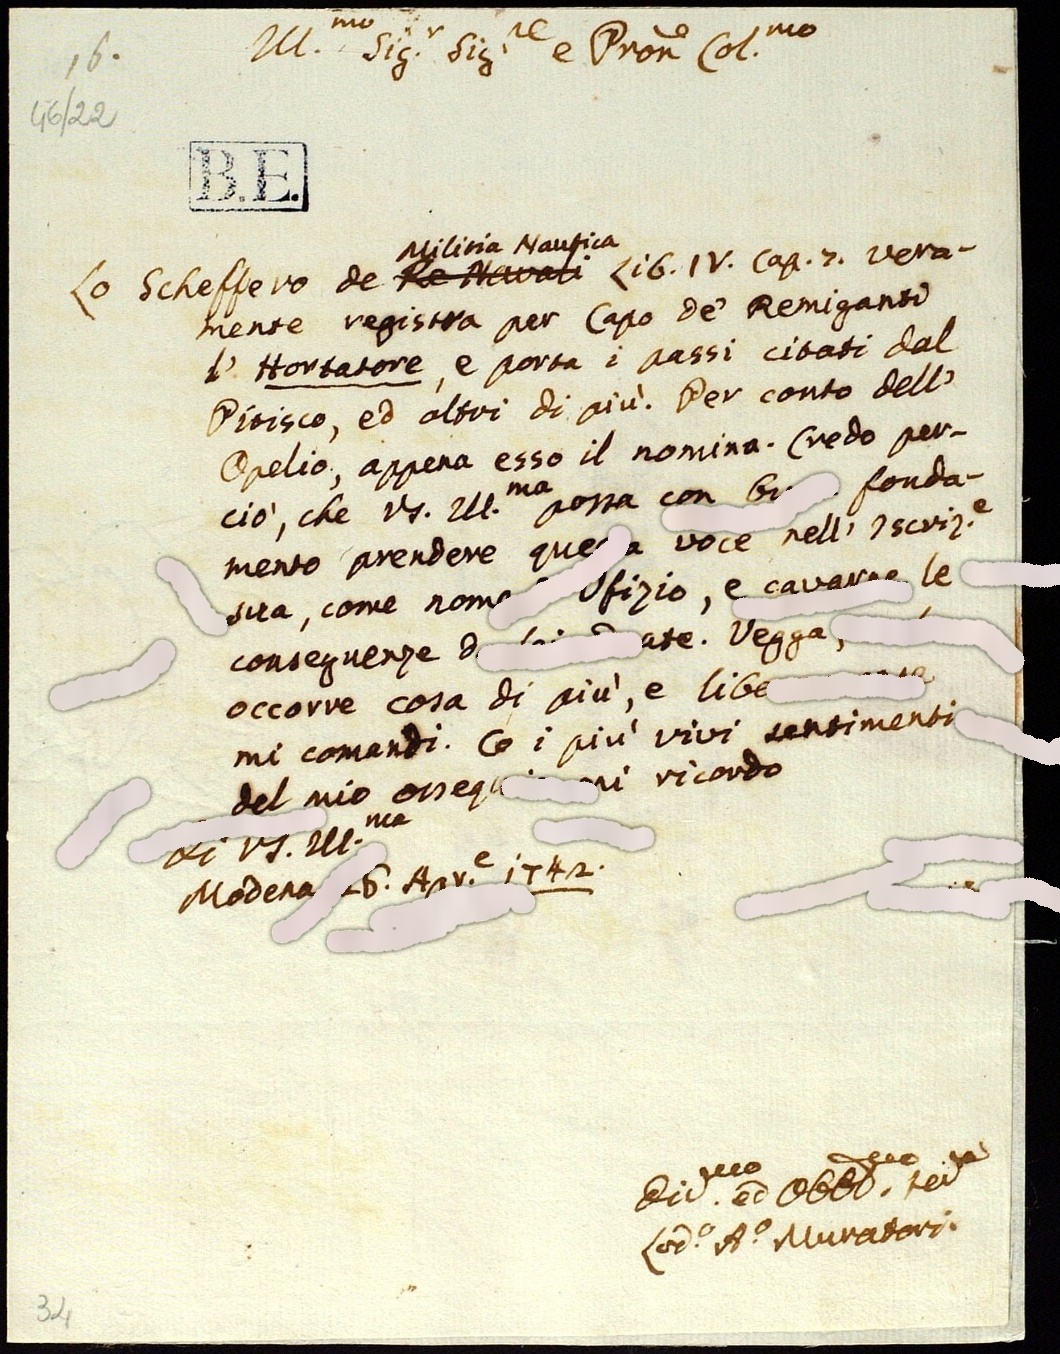 16.
46/22
Ill.mo Sig.r Sig.re e Pron.e Col.mo
B.E.
Militia Nautica
Lo Scheffero de Re Navali Lib. IV. Cap. 7. vera-
mente registra per Capo de' Remiganti
l' Hortatore, e porta i passi citati dal
Pitisco, ed altri di più. Per conto dell'
Opelio, appena esso il nomina. Credo per-
ciò, che VS. Ill.ma possa con fonda-
mento prendere questa voce nell' Iscriz.e
sua, come nome Ofizio, e cavarne le
conseguenze Vegga,
occorre cosa di più, e
mi comandi. Co i più vivi sentimenti
del mio ossequio mi ricordo
di VS. Ill.ma
Modena 26. Apr.e 1742.
Div.mo ed Obbl.mo ser.e
Lod.o A.o Muratori.
34